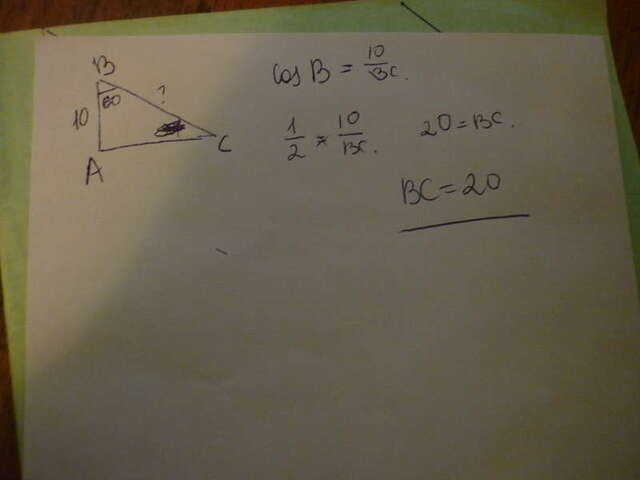 B
60
?
10
A
C
cos B = 10/BC.
1/2 = 10/BC.
20 = BC.
BC = 20